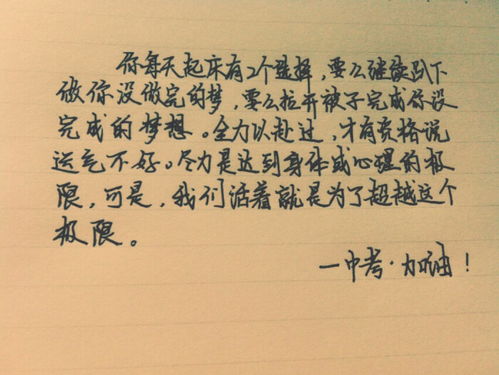 你每天起床有2个选择，要么继续趴下
做你没做完的梦，要么拉开被子完成你没
完成的梦想。全力以赴过，才有资格说
运气不好。尽力是达到身体或心理的极
限，可是，我们活着就是为了超越这个
极限。
一中考·加油！